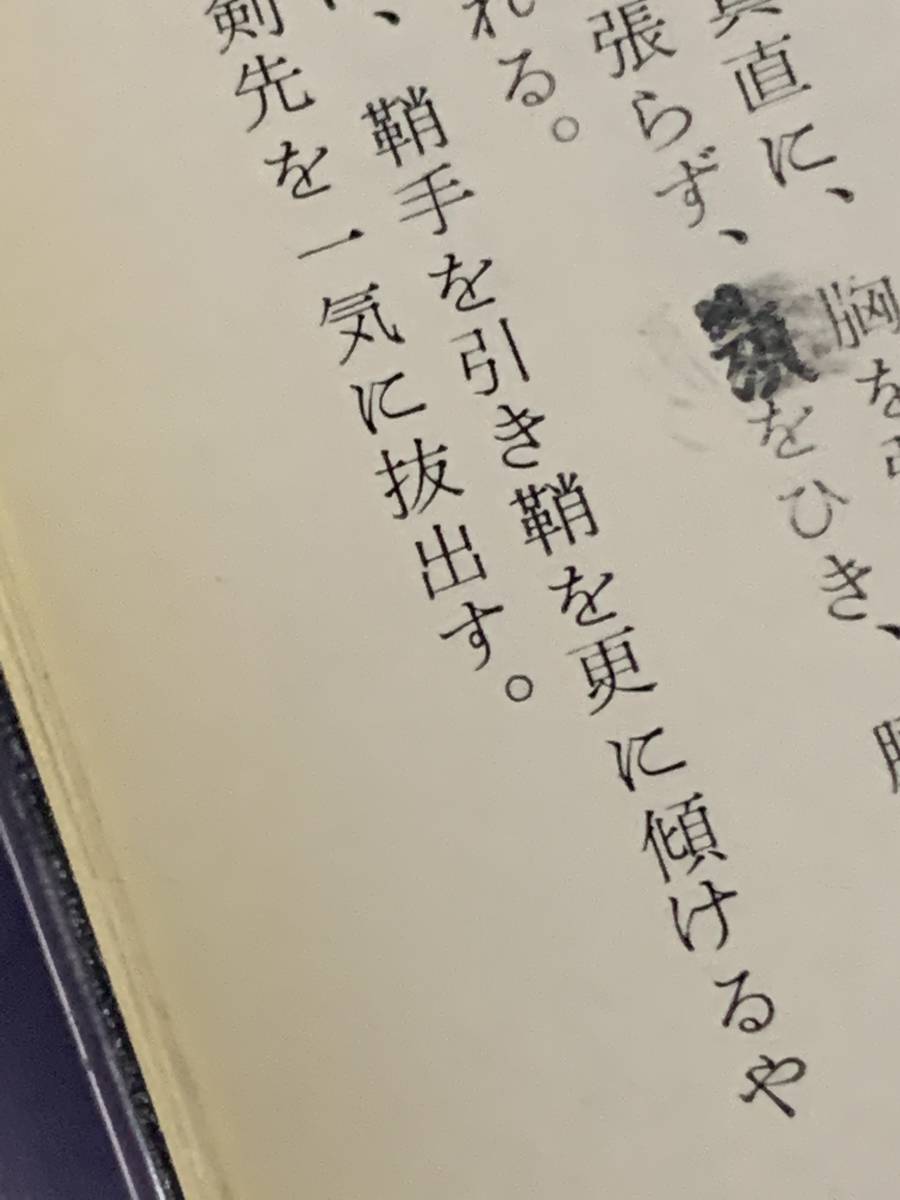 胸を
真直に、
張らず、をひき、
れる。
、鞘手を引き鞘を更に傾けるや
剣先を一気に抜出す。